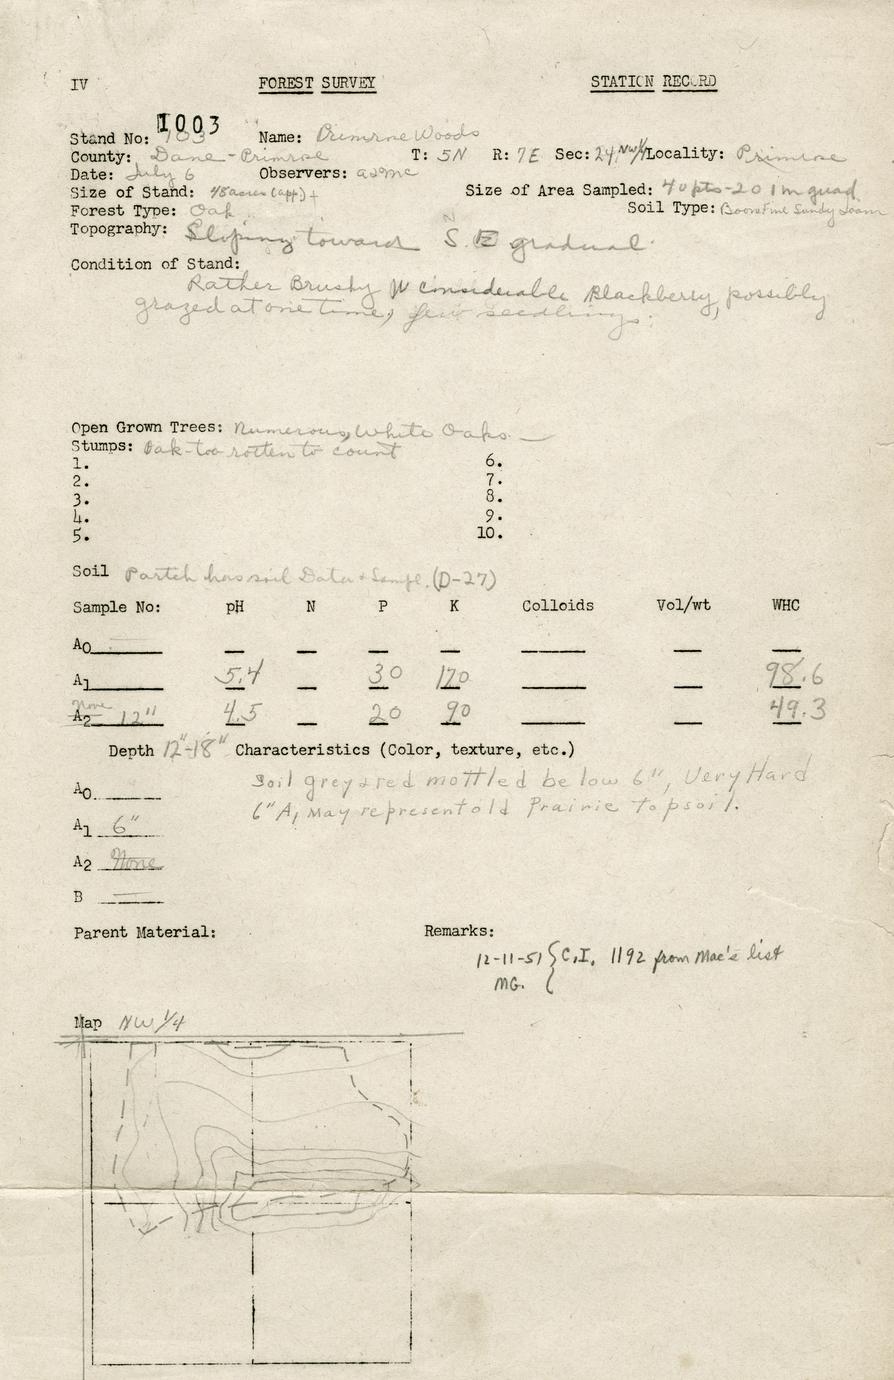 IV FOREST SURVEY STATION RECORD
1003
Stand No: 103 Name: Primrose Woods
County: Dane - Primrose T: 5N R: 7E Sec: 24, NW¼ Locality: Primrose
Date: July 6 Observers:
Size of Stand: 48 acres (app) + Size of Area Sampled: 40 pts - 20 1m quad
Forest Type: Oak Soil Type: Boone Fine Sandy Loam
Topography: Sloping toward S. E gradual.
Condition of Stand:
Rather Brushy W considerable Blackberry, possibly
grazed at one time, few seedlings.
Open Grown Trees: Numerous, White Oaks.
Stumps: Oak - too rotten to count
1. 6.
2. 7.
3. 8.
4. 9.
5. 10.
Soil Partch has soil Data & Sampl. (D-27)
Sample No: pH N P K Colloids Vol/wt WHC
A0
A1 5.4 30 170 98.6
None
A2 12" 4.5 20 90 49.3
Depth 12"-18" Characteristics (Color, texture, etc.)
A0 Soil grey & red mottled below 6", Very Hard
6" A1 may represent old Prairie topsoil.
A1 6"
A2 None
B
Parent Material: Remarks:
12-11-51 { C.I. 1192 from Mac's list
MG.
Map NW 1/4